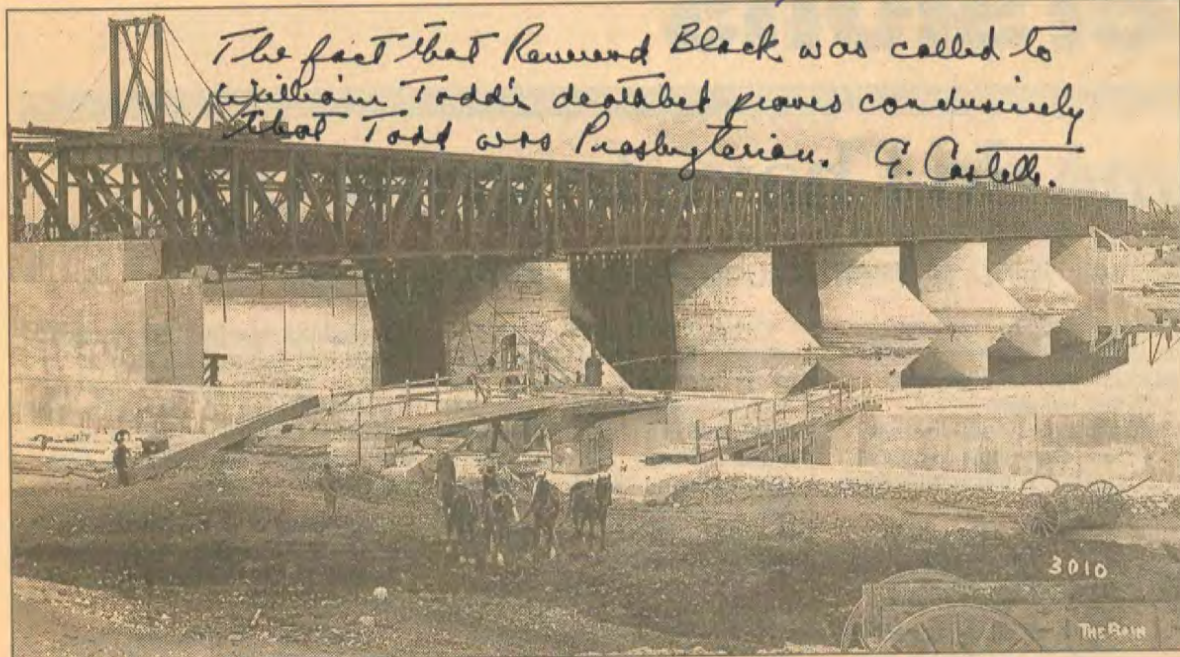 The fact that Reverend Black was called to
William Todd's deathbed proves conclusively
that Todd was Presbyterian. G. Castelli.
3010
THE